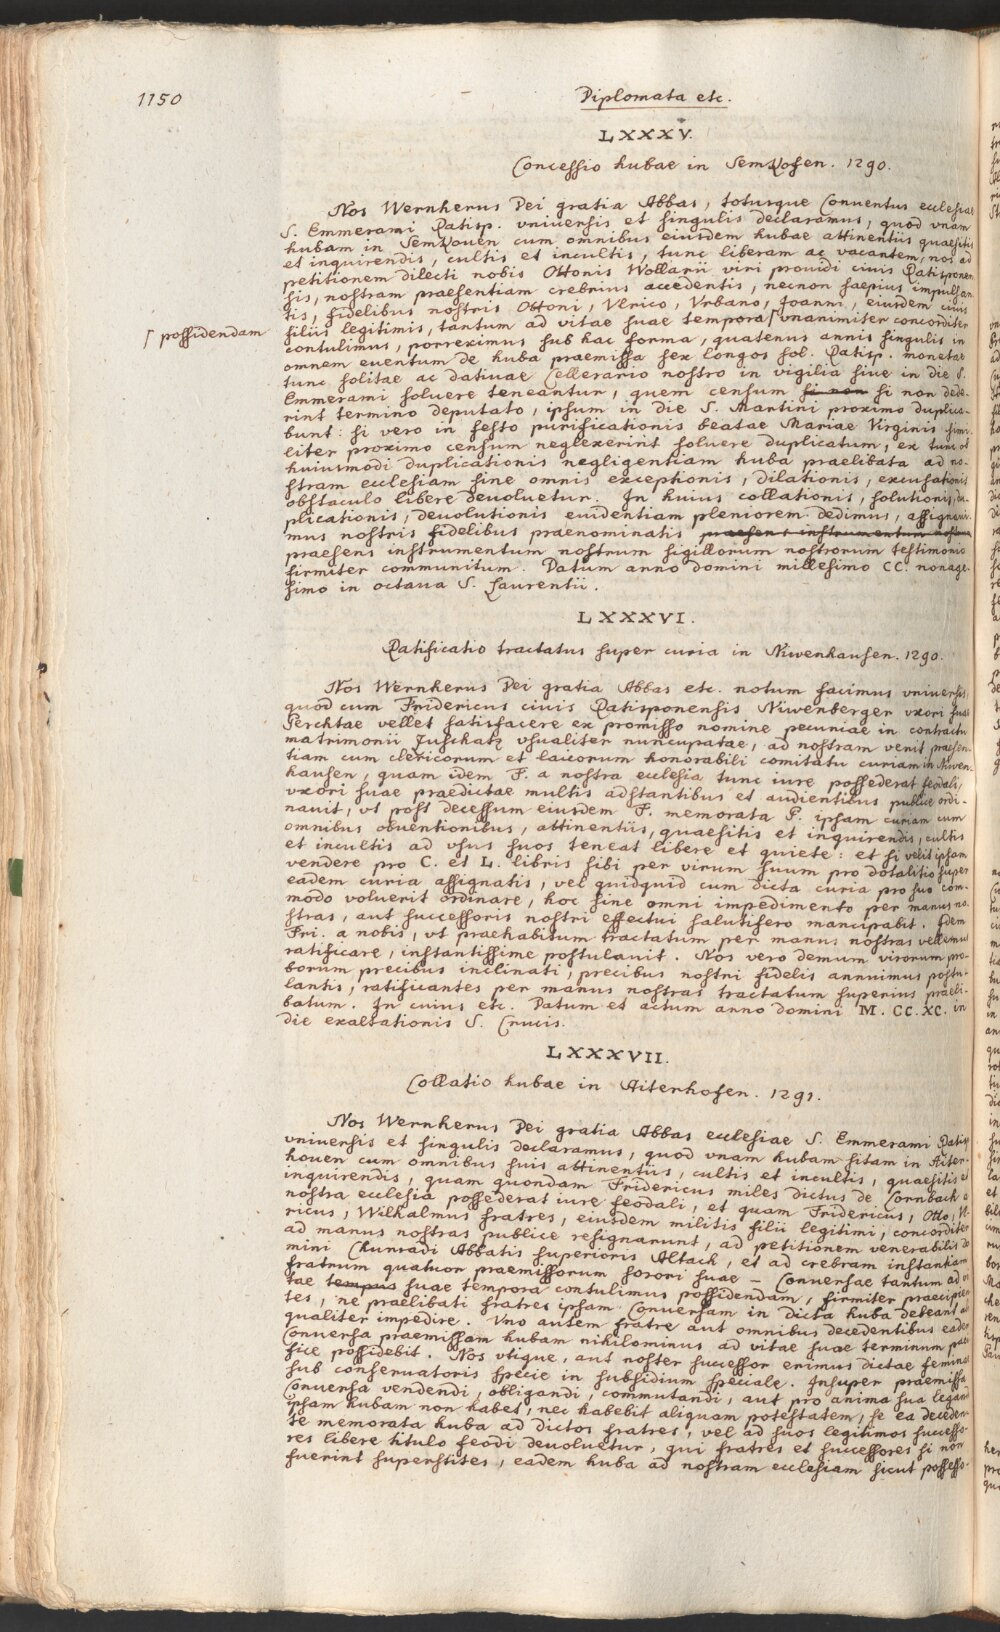 1150
Diplomata etc.
LXXXV.
Concessio hubae in Semkofen. 1290.
Nos Wernherus Dei gratia Abbas, totusque Conventus ecclesiae
S. Emmerami Ratisp. vniuersis et singulis declaramus, quod vnam
hubam in Semkouen cum omnibus eiusdem hubae attinentiis quaesitis
et inquirendis, cultis et incultis, tunc liberam ac vacantem, nos ad
petitionem dilecti nobis Ottonis Wollarii viri prouidi ciuis Ratisponen
sis, nostram praesentiam crebrius accedentis, necnon saepius impulsan
tis, fidelibus nostris Ottoni, Vlrico, Vrbano, Joanni, eiusdem ciuis
filiis legitimis, tantum ad vitae suae tempora ⌈ vnanimiter concorditer
⌈ possidendam
contulimus, porreximus sub hac forma, quatenus annis singulis in
omnem euentum de huba praemissa sex longos sol. Ratisp. monetae
tunc solitae ac datiuae Cellerario nostro in vigilia siue in die S.
Emmerami soluere teneantur, quem censum si non si non dede-
rint termino deputato, ipsum in die S. Martini proximo duplica-
bunt: si vero in festo purificationis beatae Mariae Virginis simi-
liter proximo censum neglexerint soluere duplicatum, ex tunc ob
huiusmodi duplicationis negligentiam huba praelibata ad no-
stram ecclesiam sine omnis exceptionis, dilationis, excusationis
obstaculo libere deuoluetur. In huius collationis, solutionis, du-
plicationis, deuolutionis euidentiam pleniorem dedimus, assignaui-
mus nostris fidelibus praenominatis praesens instrumentum nostrum
praesens instrumentum nostrum sigillorum nostrorum testimonio
firmiter communitum. Datum anno domini millesimo CC. nonage-
simo in octaua S. Laurentii.
LXXXVI.
Ratificatio tractatus super curia in Niwenhausen. 1290.
Nos Wernherus Dei gratia Abbas etc. notum facimus vniuersis,
quod cum Fridericus ciuis Ratisponensis Niwenberger vxori suae
Perchtae vellet satisfacere ex promisso nomine pecuniae in contractu
matrimonii Juschatz vsualiter nuncupatae, ad nostram venit praesen-
tiam cum clericorum et laicorum honorabili comitatu curiam in Niwen-
hausen, quam idem F. a nostra ecclesia tunc iure possederat feodali,
vxori suae praedictae multis adstantibus et audientibus publice ordi-
nauit, vt post decessum eiusdem F. memorata P. ipsam curiam cum
omnibus obuentionibus, attinentiis, quaesitis et inquirendis, cultis
et incultis ad vsus suos teneat libere et quiete: et si velit ipsam
vendere pro C. et L. libris sibi per virum suum pro dotalitio super
eadem curia assignatis, vel quidquid cum dicta curia pro suo com-
modo voluerit ordinare, hoc sine omni impedimento per manus no-
stras, aut successoris nostri effectui salutifero mancipabit. Idem
Fri. a nobis, vt praehabitum tractatum per manus nostras vellemus
ratificare, instantissime postulauit. Nos vero demum virorum pro-
borum precibus inclinati, precibus nostri fidelis annuimus postu-
lantis, ratificantes per manus nostras tractatum superius praeli-
batum. In cuius etc. Datum et actum anno domini M. CC. XC. in
die exaltationis S. Crucis.
LXXXVII.
Collatio hubae in Aiterhofen. 1291.
Nos Wernherus Dei gratia Abbas ecclesiae S. Emmerami Ratisp.
vniuersis et singulis declaramus, quod vnam hubam sitam in Aiter-
houen cum omnibus suis attinentiis, cultis et incultis, quaesitis et
inquirendis, quam quondam Fridericus miles dictus de Cornbach a
nostra ecclesia possederat iure feodali, et quam Fridericus, Otto, Vl-
ricus, Wilhalmus fratres, eiusdem militis filii legitimi, concorditer
ad manus nostras publice resignarunt, ad petitionem venerabilis do
mini Chunradi Abbatis superioris Altach, et ad crebram instantiam
fratrum quatuor praemissorum sorori suae – Conuersae tantum ad vi
tae tempus suae tempora contulimus possidendam, firmiter praecipien
tes, ne praelibati fratres ipsam Conuersam in dicta huba debeant ali
qualiter impedire. Vno autem fratre aut omnibus decedentibus eadem
Conuersa praemissam hubam nihilominus ad vitae suae terminum paci
fice possidebit. Nos vtique, aut noster successor erimus dictae feminae
sub conseruatoris specie in subsidium speciale. Insuper praemissa
Conuersa vendendi, obligandi, commutandi, aut pro anima sua legandi
ipsam hubam non habet, nec habebit aliquam potestatem, se ea deceden-
te memorata huba ad dictos fratres, vel ad suos legitimos successo-
res libere titulo feodi deuoluetur, qui fratres et successores si non
fuerint superstites, eadem huba ad nostram ecclesiam sicut possesso-